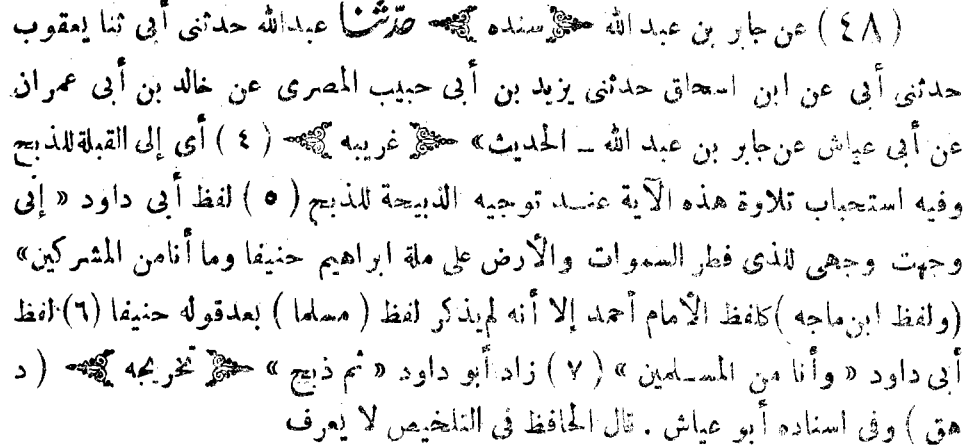 (٤٨) عن جابر بن عبد الله ﴿سنده﴾ حدثنا عبدالله حدثنى أبى ثنا يعقوب
حدثنى أبى عن ابن اسحاق حدثنى يزيد بن أبى حبيب المصرى عن خالد بن أبى عمران
عن أبى عياش عن جابر بن عبد الله ــ الحديث» ﴿غريبه﴾ (٤) أى إلى القبلة للذبح
وفيه استحباب تلاوة هذه الآية عنــد توجيه الذبيحة للذبح (٥) لفظ أبى داود « إنى
وجهت وجهى للذى فطر السموات والأرض على ملة ابراهيم حنيفا وما أنامن المشركين»
(ولفظ ابن ماجه)كلفظ الأمام أحمد إلا أنه لم يذكر لفظ (مسلما) بعدقوله حنيفا (٦) لفظ
أبى داود « وأنا من المســلمين » (٧) زاد أبو داود « ثم ذبح » ﴿تخريجه﴾ (د
هق) وفى اسناده أبو عياش . قال الحافظ فى التلخيص لا يعرف